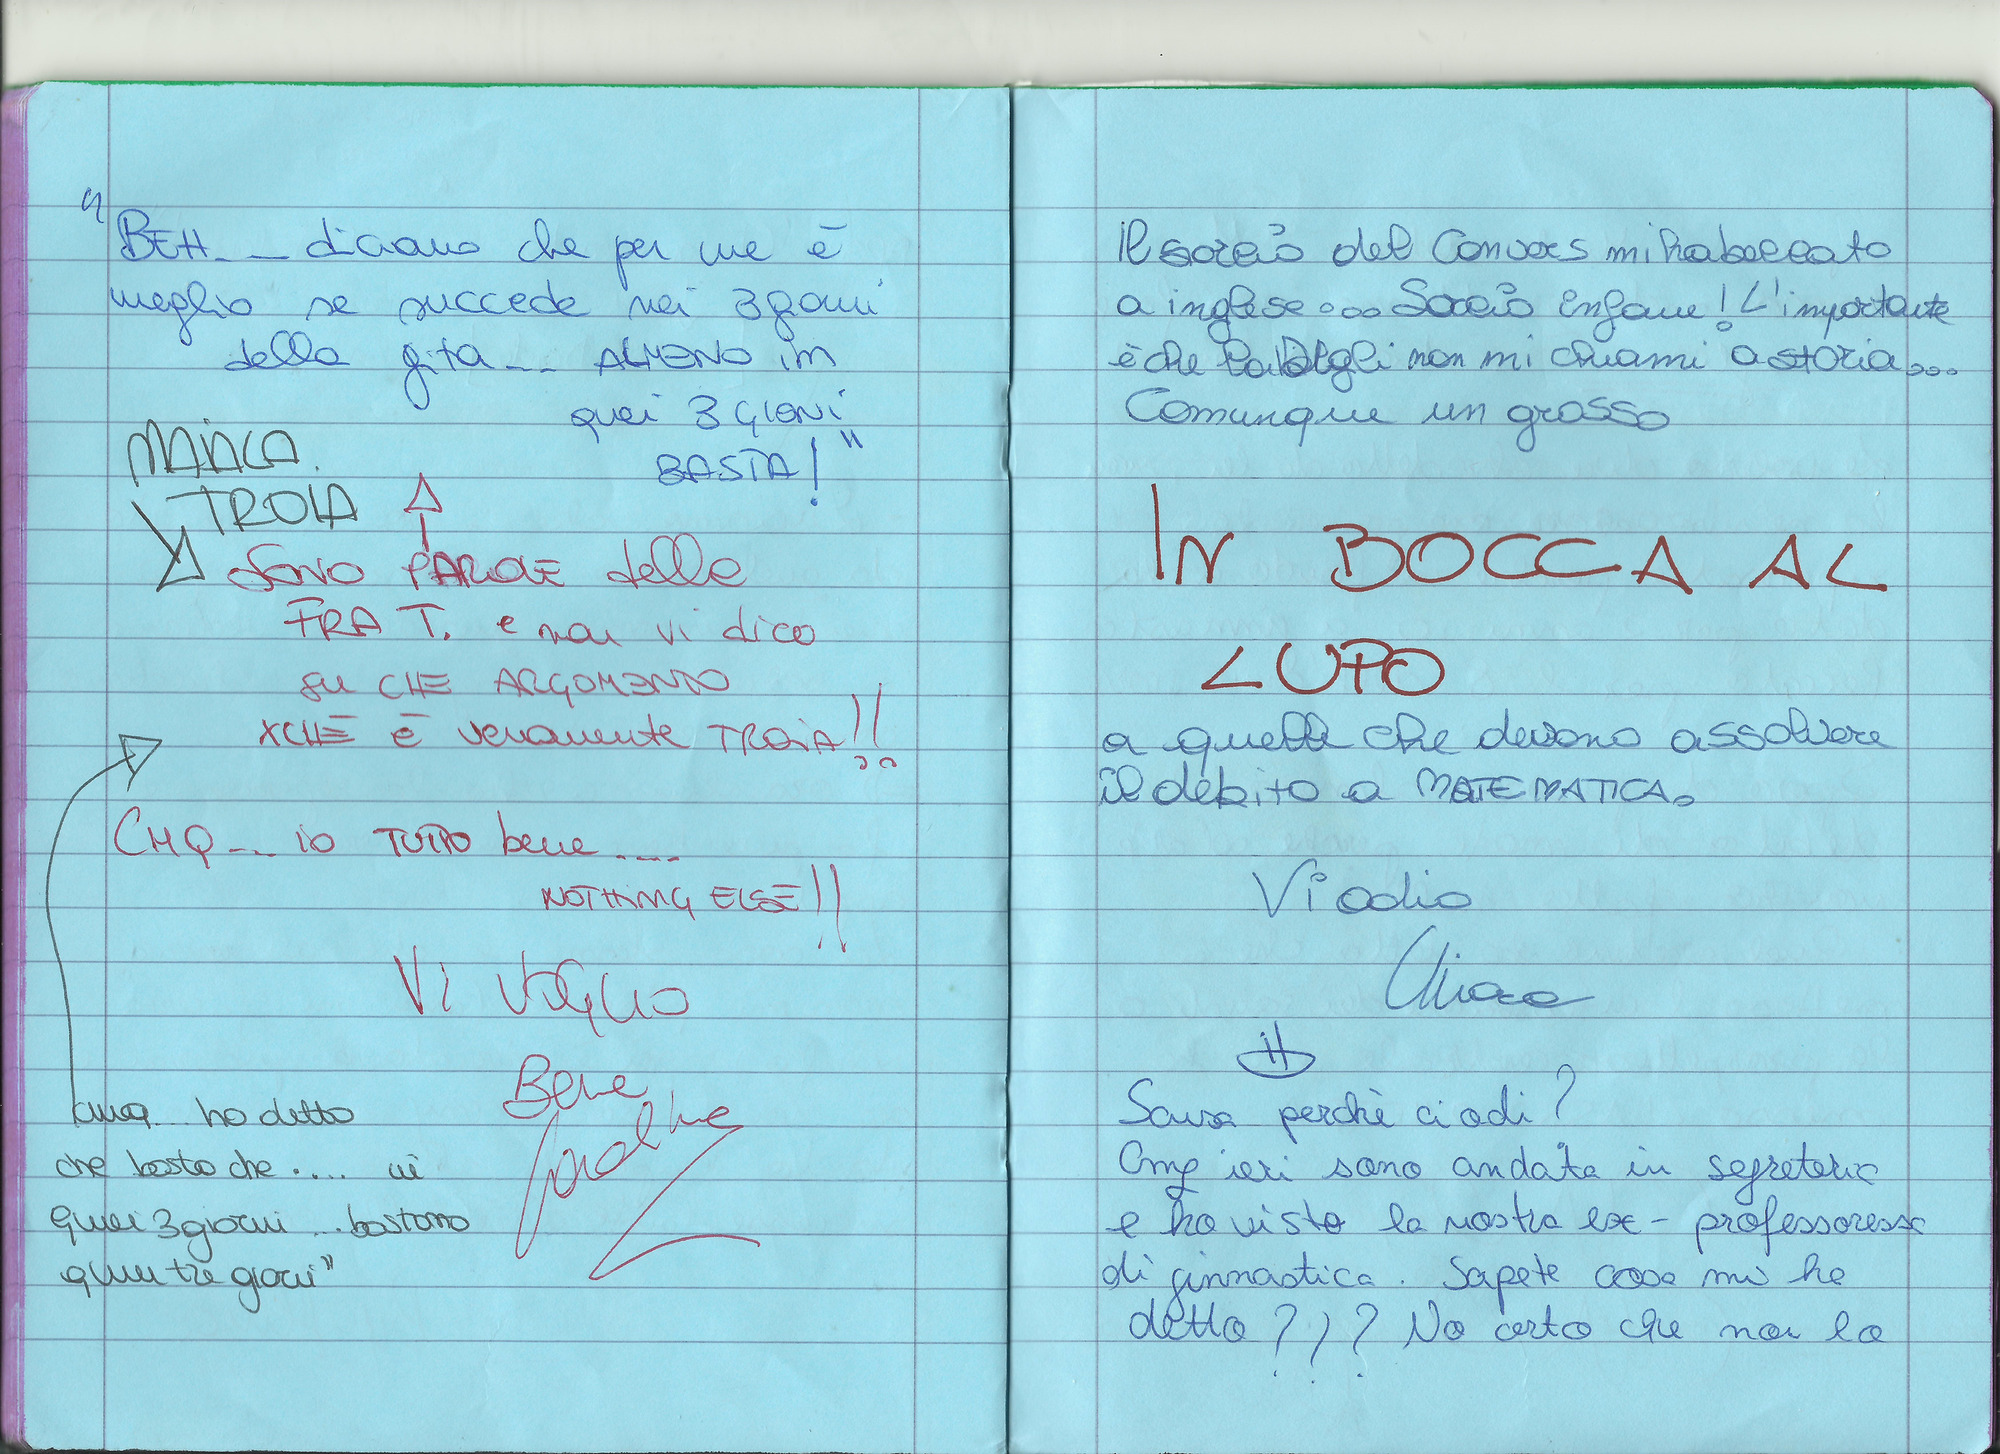 "BEH... diciamo che per me è
meglio se succede nei 3 giorni
della gita... ALMENO in
quei 3 GIONI
BASTA!"
TROIA
Sono PAROLE della
FRA T. e non vi dico
su CHE ARGOMENTO
XCHÈ È veramente TROIA!!
CMQ... io TUTTO bene....
NOTHING ELSE!!
VI VOGLIO
Bene
cmq... ho detto
che basta che.... in
quei 3 giorni... bastano
quei tre giorni"
Il sorcio del Convers mi ha beccato
a inglese... Sorcio infame! L'importante
è che la non mi chiami a storia...
Comunque un grosso
IN BOCCA AL
LUPO
a quelle che devono assolvere
il debito a MATEMATICA.
Vi odio
Chiara
Scusa perchè ci odi?
Cmq ieri sono andata in segreteria
e ho visto la nostra ex-professoressa
di ginnastica. Sapete cosa mi ha
detto?!? No certo che non lo